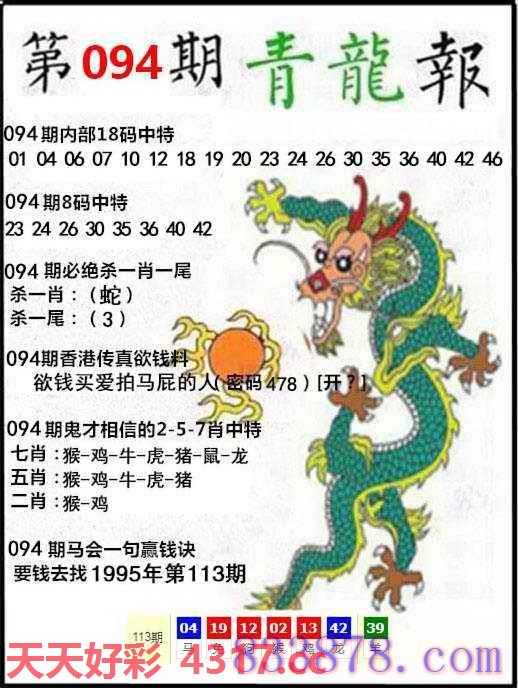 第094期 青龍報
094期内部18码中特
01 04 06 07 10 12 18 19 20 23 24 26 30 35 36 40 42 46
094期8码中特
23 24 26 30 35 36 40 42
094期必绝杀一肖一尾
杀一肖：（蛇）
杀一尾：（3）
094期香港传真欲钱料
欲钱买爱拍马屁的人（密码478）[开？]
094期鬼才相信的2-5-7肖中特
七肖：猴-鸡-牛-虎-猪-鼠-龙
五肖：猴-鸡-牛-虎-猪
二肖：猴-鸡
094期马会一句赢钱诀
要钱去找1995年第113期
113期 04 19 12 02 13 42 39
马 兔 狗 猴 鸡 龙 羊
天天好彩 4317.cc